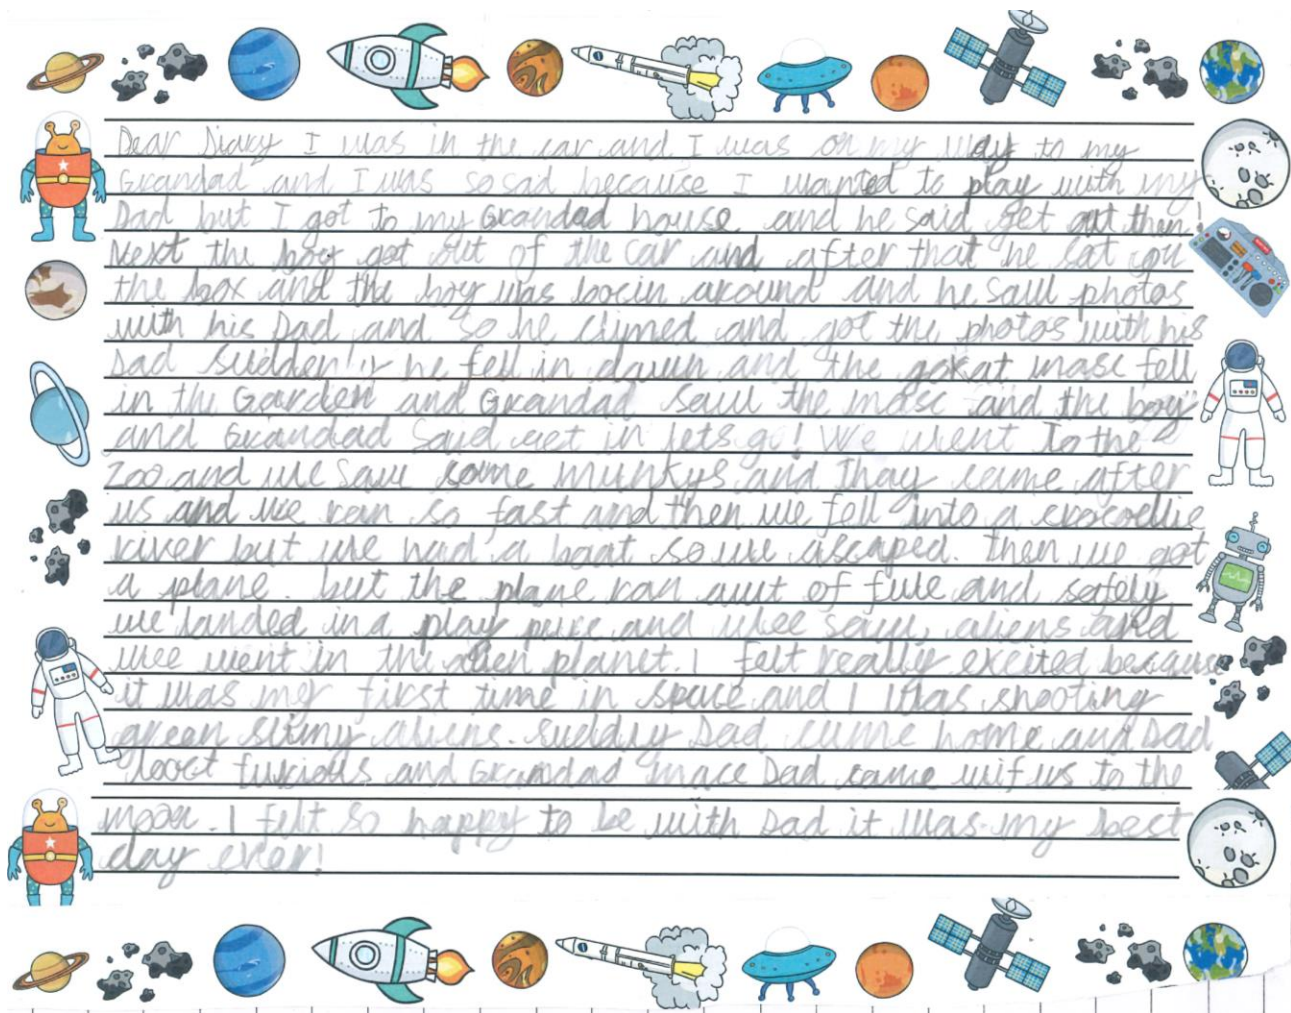 Dear Diary I was in the car and I was on my way to my
Grandad and I was so sad because I wanted to play with my
Dad but I got to my Grandad house and he said get out then!
Next the boy got out of the car and after that he sat on
the box and the boy was loocin around and he saw photos
with his Dad and so he climed and got the photos with his
Dad suddenly he fell in dawn and the goxat masc fell
in the Garden and Grandad saw the masc and the boy
and Grandad said get in lets go! We went to the
zoo and we saw some munkys and thay came after
us and we ran so fast and then we fell into a crocodlie
river but we had a boat so we ascaped. then we got
a plane. but the plane ran awt of fule and safely
we landed in a play and wee saw aliens and
wee went in the alien planet. I felt really excited because
it was my first time in space and I was shooting
green slimy aliens. Suddly Dad came home and Dad
looct furious and Grandad mace Dad came wif us to the
moon. I felt so happy to be with Dad it was my best
day ever!